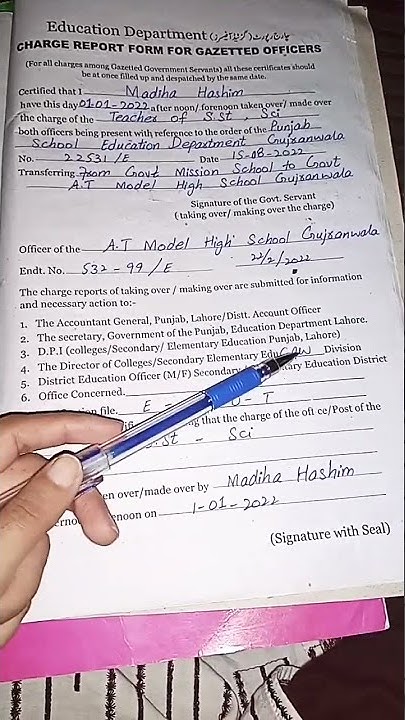 Education Department (چارج رپورٹ گزیٹڈ آفیسرز)
CHARGE REPORT FORM FOR GAZETTED OFFICERS
(For all charges among Gazetted Government Servants) all these certificates should
be at once filled up and despatched by the same date.
Certified that I Madiha Hashim
have this day 01-01-2022 after noon/ forenoon taken over/ made over
the charge of the Teacher of S.St, Sci
both officers being present with reference to the order of the Punjab
School Education Department Gujranwala
No. 22531/E Date 15-08-2022
Transferring from Govt Mission School to Govt
A.T Model High School Gujranwala
Signature of the Govt. Servant
( taking over/ making over the charge)
Officer of the A.T Model High School Gujranwala
Endt. No. 532-99/E 22/2/2022
The charge reports of taking over / making over are submitted for information
and necessary action to:-
1. The Accountant General, Punjab, Lahore/Distt. Account Officer
2. The secretary, Government of the Punjab, Education Department Lahore.
3. D.P.I (colleges/Secondary/ Elementary Education Punjab, Lahore)
4. The Director of Colleges/Secondary Elementary Edu Division
5. District Education Officer (M/F) Secondary Education District
6. Office Concerned.
file. E - T
that the charge of the of ce/Post of the
St - Sci
en over/made over by Madiha Hashim
noon on 1-01-2022
(Signature with Seal)